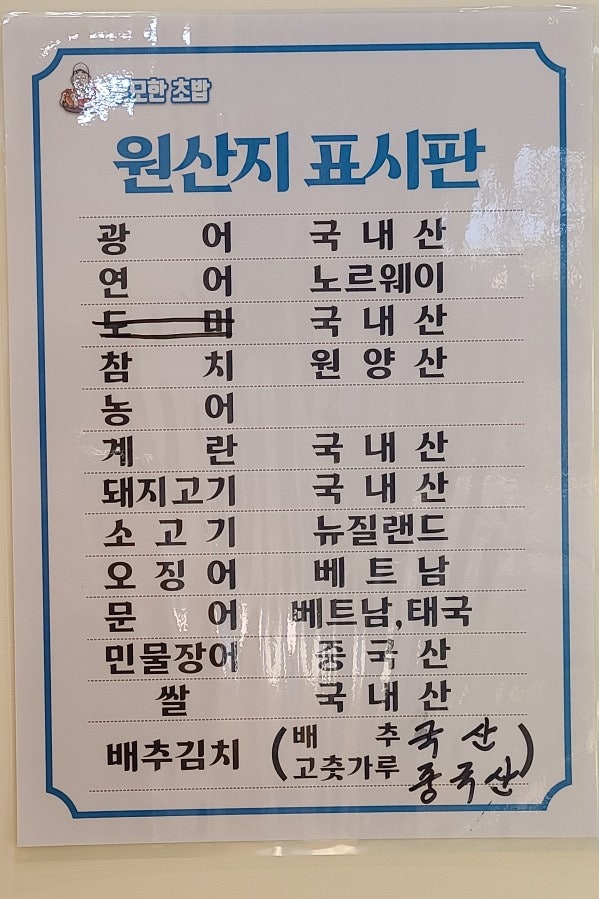 모한 초밥
원산지 표시판
광어 국내산
연어 노르웨이
도미 국내산
참치 원양산
농어
계란 국내산
돼지고기 국내산
소고기 뉴질랜드
오징어 베트남
문어 베트남,태국
민물장어 중국산
쌀 국내산
배추김치 (배추 국산
고춧가루 중국산)